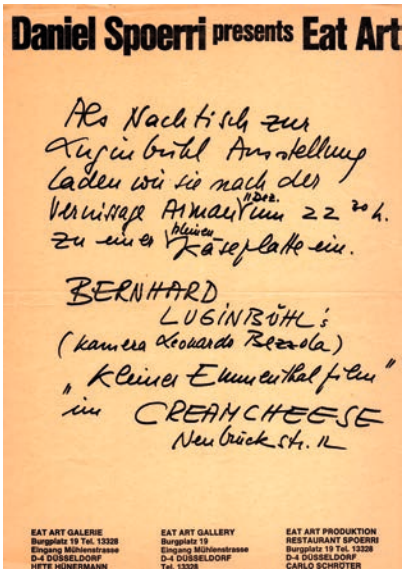 Daniel Spoerri presents Eat Art
Als Nachtisch zur
Luginbühl Ausstellung
laden wir sie nach der
Vernissage Arman Dez. um 22 30 h.
zu einer kleinen Käseplatte ein.
BERNHARD
LUGINBÜHL's
(Kamera Leonardo Bezzola)
"Kleiner Emmenthalfilm"
im CREAMCHEESE
Neubrückstr. 12
EAT ART GALERIE
Burgplatz 19 Tel. 13328
Eingang Mühlenstrasse
D-4 DÜSSELDORF
HETE HÜNERMANN
EAT ART GALLERY
Burgplatz 19
Eingang Mühlenstrasse
D-4 DÜSSELDORF
Tel. 13328
EAT ART PRODUKTION
RESTAURANT SPOERRI
Burgplatz 19 Tel. 13328
D-4 DÜSSELDORF
CARLO SCHRÖTER